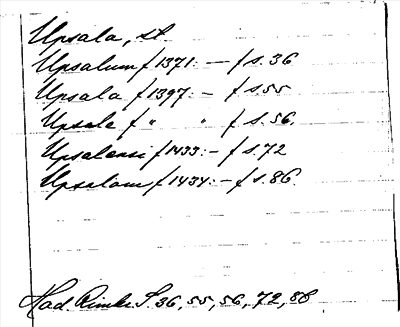 Upsala, st.
Upsalum f 1371. — f s. 36
Upsala f 1397. — f s. 55
Upsala f " " f s. 56.
Upsalensi f 1433. — f s. 72
Upsalam f 1434. — f s. 86.
Had. Rimkr. S. 36, 55, 56, 72, 86